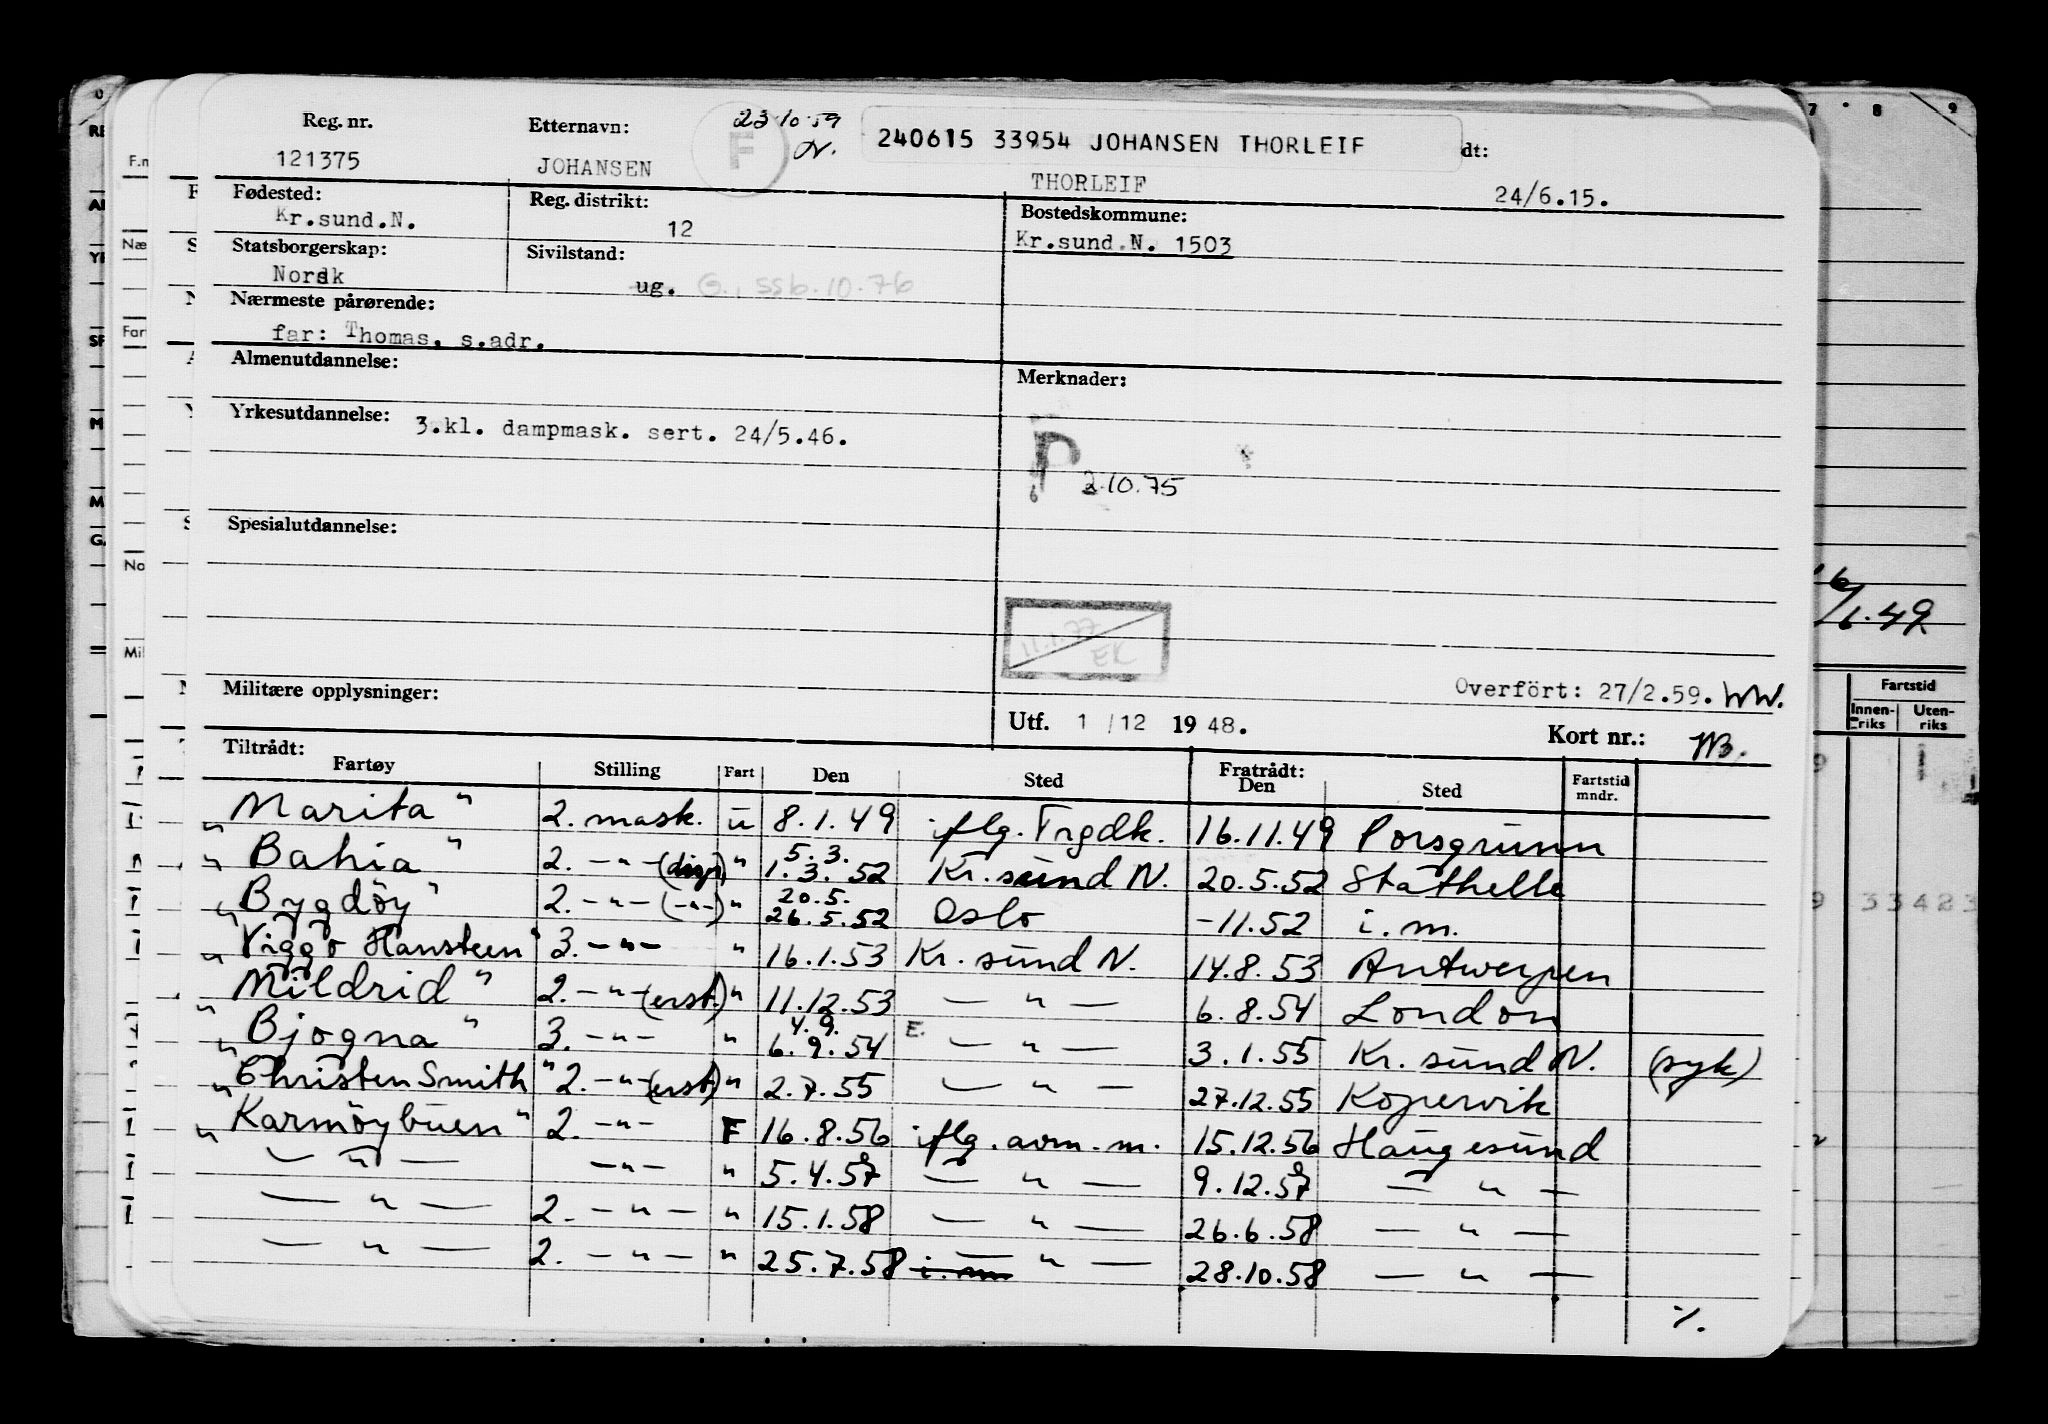 Reg. nr. Etternavn: 23.10.59 240615 33954 JOHANSEN THORLEIF dt:
121375 JOHANSEN F THORLEIF 24/6.15.
Fødested: Reg. distrikt: Bostedskommune:
Kr.sund.N. 12 Kr.sund.N. 1503
Statsborgerskap: Sivilstand:
Norsk ug. G., SSB.10.76
Nærmeste pårørende:
far: Thomas, s.adr.
Almenutdannelse: Merknader:
Yrkesutdannelse: 3.kl. dampmask. sert. 24/5.46.
P 2.10.75
Spesialutdannelse:
11.1.77
EK
6/1.49
Militære opplysninger: Overfört: 27/2.59. WW.
Utf. 1/12 1948. Kort nr.:
Fartstid
Innenriks Utenriks
Tiltrådt: Fratrådt:
Fartøy Stilling Fart Den Sted Den Sted Fartstid mndr.
"Marita" 2. mask. u 8.1.49 iflg. Trgdk. 16.11.49 Porsgrunn
5.3.
"Bahia" 2. -"- (disp) " 1.3.52 Kr.sund N. 20.5.52 Stathelle
20.5.
"Bygdöy" 2. -"- (-"-) " 26.5.52 Oslo -11.52 i.m.
"Viggo Hansteen" 3. -"- " 16.1.53 Kr.sund N. 14.8.53 Antwerpen
"Mildrid" 2. -"- (erst.) " 11.12.53 -"- 6.8.54 London
4.9.
"Bjogna" 3. -"- " 6.9.54 E. -"- 3.1.55 Kr.sund N. (syk)
"Christen Smith" 2. -"- (erst) " 2.7.55 -"- 27.12.55 Kopervik
"Karmöybuen" 2. -"- F 16.8.56 iflg. avm.m. 15.12.56 Haugesund
-"- -"- " 5.4.57 -"- 9.12.57 -"-
-"- 2. -"- " 15.1.58 -"- 26.6.58 -"-
-"- 2. -"- " 25.7.58 i.m. -"- 28.10.58 -"-
%.